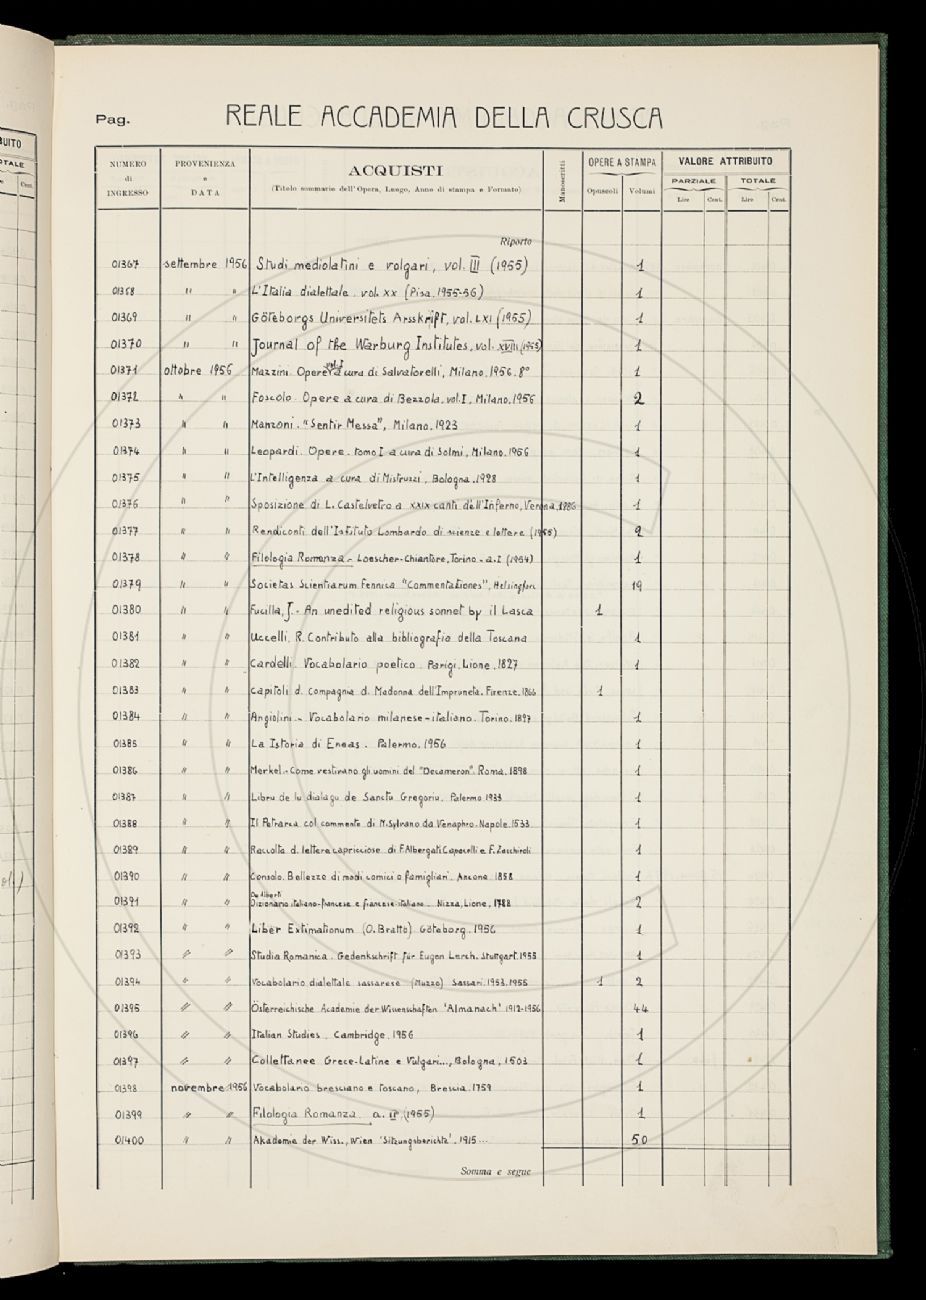 Pag.
REALE ACCADEMIA DELLA CRUSCA
NUMERO di INGRESSO
PROVENIENZA e DATA
ACQUISTI
(Titolo sommario dell'Opera, Luogo, Anno di stampa e Formato)
Manoscritti
OPERE A STAMPA
Opuscoli Volumi
VALORE ATTRIBUITO
PARZIALE TOTALE
Lire Cent. Lire Cent.
Riporto
01367 settembre 1956 Studi mediolatini e volgari, vol. III (1955) 1
01368 " " L'Italia dialettale. vol. XX (Pisa, 1955-56) 1
01369 " " Göteborgs Universitets Arsskrift, vol. LXI (1955) 1
01370 " " Journal of the Warburg Institutes, vol. XVIII (1955) 1
01371 ottobre 1956 Mazzini. Opere vol. I a cura di Salvatorelli, Milano. 1956. 8° 1
01372 " " Foscolo. Opere a cura di Bezzola. vol. I, Milano. 1956 2
01373 " " Manzoni. "Sentir Messa", Milano. 1923 1
01374 " " Leopardi. Opere. tomo I a cura di Solmi, Milano. 1956 1
01375 " " L'Intelligenza a cura di Mistruzzi, Bologna. 1928 1
01376 " " Sposizione di L. Castelvetro a XXIX canti dell'Inferno, Verona, 1886 1
01377 " " Rendiconti dell'Istituto Lombardo di scienze e lettere (1955) 2
01378 " " Filologia Romanza - Loescher-Chiantore, Torino - a. I (1954) 1
01379 " " Societas Scientiarum Fennica "Commentationes", Helsingfors 19
01380 " " Fucilla, J. - An unedited religious sonnet by il Lasca 1
01381 " " Uccelli, R. Contributo alla bibliografia della Toscana 1
01382 " " Cardelli. Vocabolario poetico. Parigi, Lione, 1827 1
01383 " " Capitoli d. compagnia d. Madonna dell'Impruneta. Firenze. 1866 1
01384 " " Angiolini - Vocabolario milanese-italiano. Torino. 1897 1
01385 " " La Istoria di Eneas. Palermo. 1956 1
01386 " " Merkel - Come vestivano gli uomini del "Decameron". Roma. 1898 1
01387 " " Libru de lu dialagu de Sanctu Gregoriu. Palermo 1933 1
01388 " " Il Petrarca col commento di M. Sylvano da Venaphro. Napole. 1533 1
01389 " " Raccolta d. lettere capricciose di F. Albergati Capacelli e F. Zacchiroli 1
01390 " " Consolo. Bellezze di modi comici e famigliari. Ancona 1858 1
De Alberti
01391 " " Dizionario italiano-francese e francese-italiano. Nizza, Lione, 1788 2
01392 " " Liber Extimationum (O. Bratto) Göteborg. 1956 1
01393 " " Studia Romanica. Gedenkschrift für Eugen Lerch. Stuttgart. 1955 1
01394 " " Vocabolario dialettale sassarese (Muzzo) Sassari. 1953. 1955 1 2
01395 " " Österreichische Academie der Wissenschaften 'Almanach' 1912-1956 44
01396 " " Italian Studies. Cambridge. 1956 1
01397 " " Collettanee Grece-Latine e Vulgari..., Bologna, 1503 1
01398 novembre 1956 Vocabolario bresciano e toscano, Brescia. 1759 1
01399 " " Filologia Romanza. a. II (1955) 1
01400 " " Akademie der Wiss., Wien 'Sitzungsberichte'. 1915 ... 50
Somma e segue